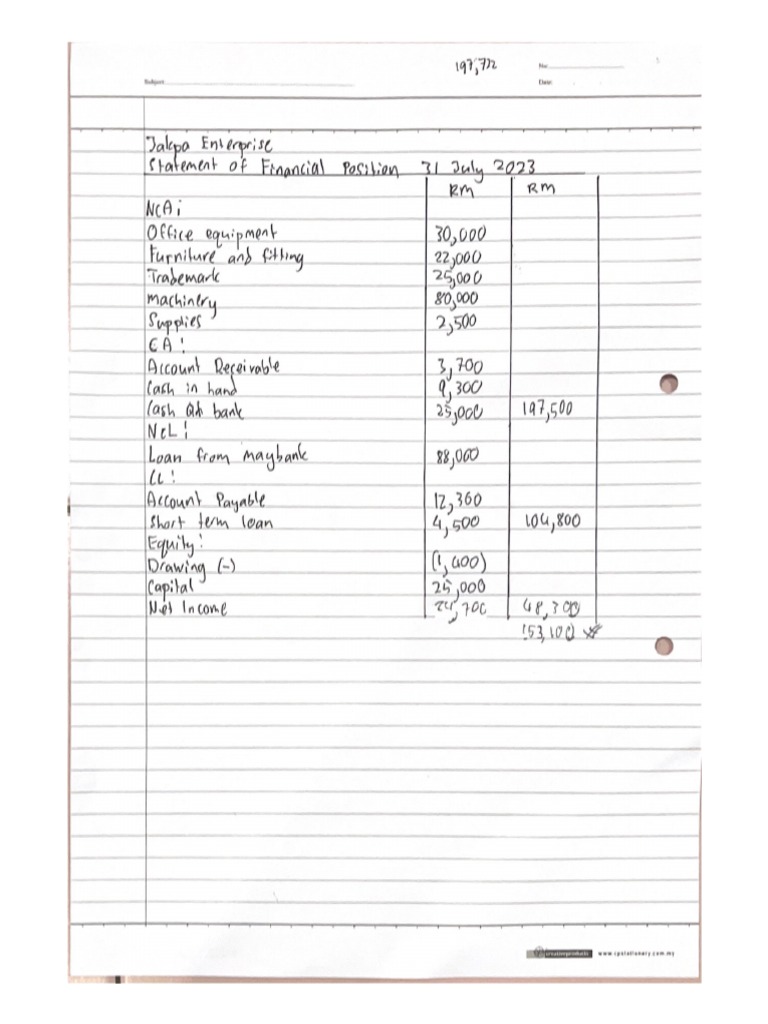 197,712
No:
Subject:
Date:
Jakpa Enterprise
Statement of Financial Position 31 July 2023
RM RM
NCA:
Office equipment 30,000
Furniture and fitting 22,000
Trademark 25,000
Machinery 80,000
Supplies 2,500
CA:
Account Receivable 3,700
Cash in hand 9,300
Cash at bank 25,000 197,500
NCL:
Loan from maybank 88,000
CL:
Account Payable 12,360
Short term loan 4,500 104,800
Equity:
Drawing (-) (1,400)
Capital 25,000
Net Income 24,700 48,300
153,100
creativeproducts www.cpstationery.com.my